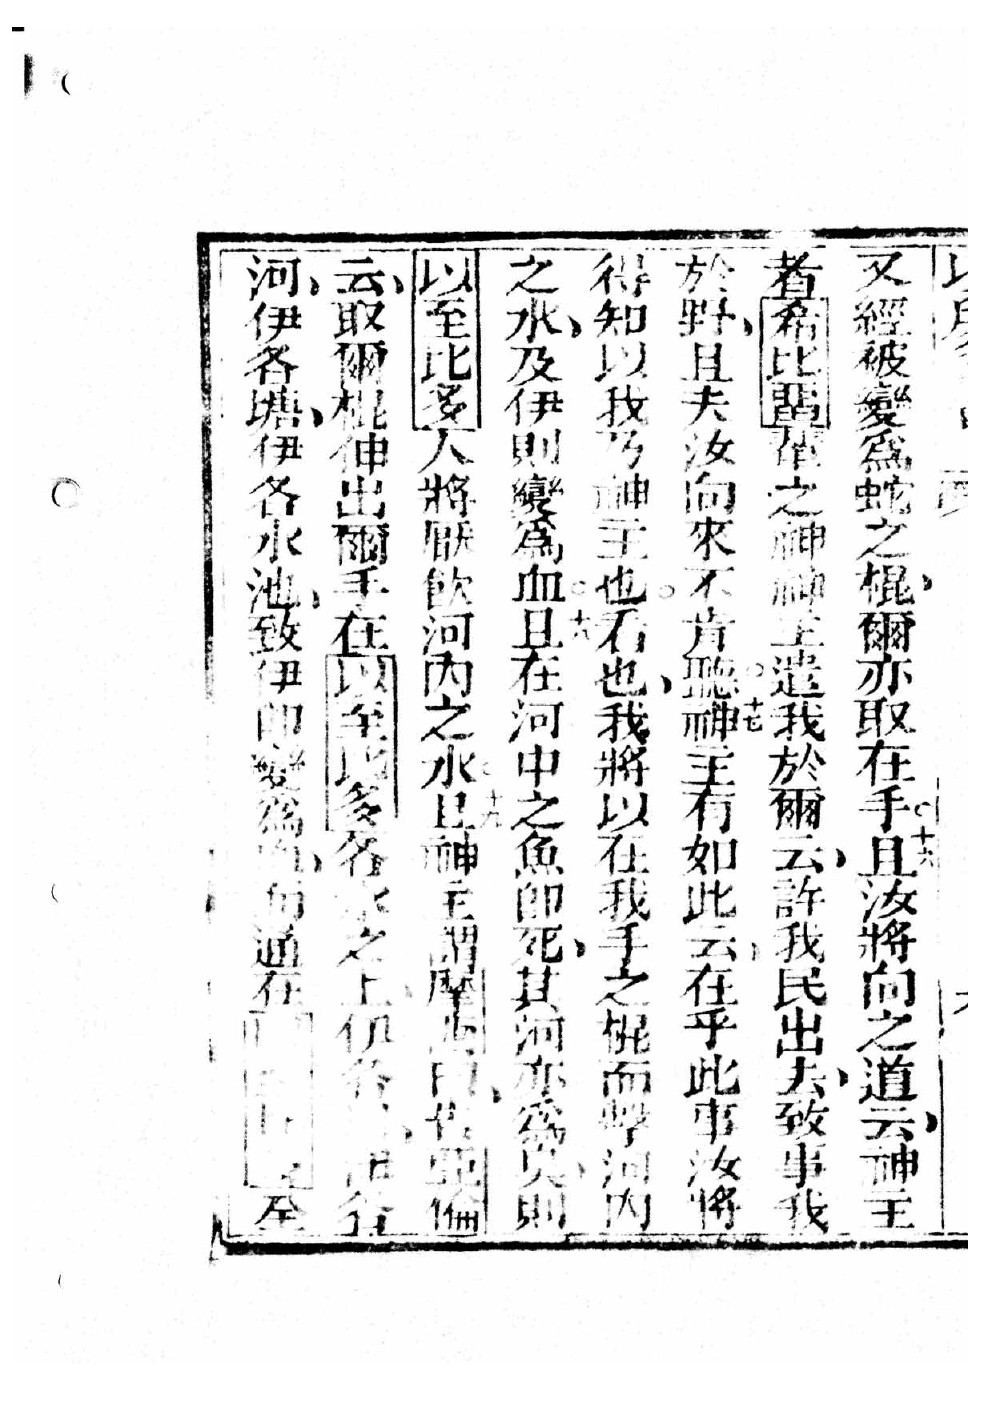 又經被變爲蛇之棍爾亦取在手○十六且汝將向之道云神主
者希比䛔輩之神神主遣我於爾云許我民出去致事我
於野且夫汝向來不肯聽○十七神主有如此云在乎此事汝將
得知以我乃神主也○看也我將以在我手之棍而擊河內
之水及伊則變爲血○十八且在河中之魚卽死其河亦爲臭則
以至比多人將厭飲河內之水○十九且神主謂摩西曰謂亞倫
云取爾棍伸出爾手在以至比多各水之上伊各
河伊各塘伊各水池致伊卽變爲血而通在至